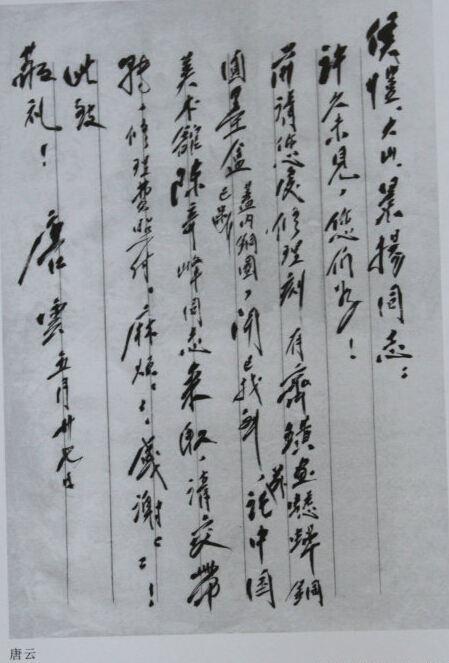 侯恺、大山、景扬同志：
许久未见，您们好！
前请您处修理刻有齐璜画蟋蟀铜
圆墨盒盖内铜圈已断，闻已找到，託中国
美术馆陈同志来取，请交带
修理费照付。麻烦，感谢！
此致
敬礼！
唐云 五月廿七日
唐云